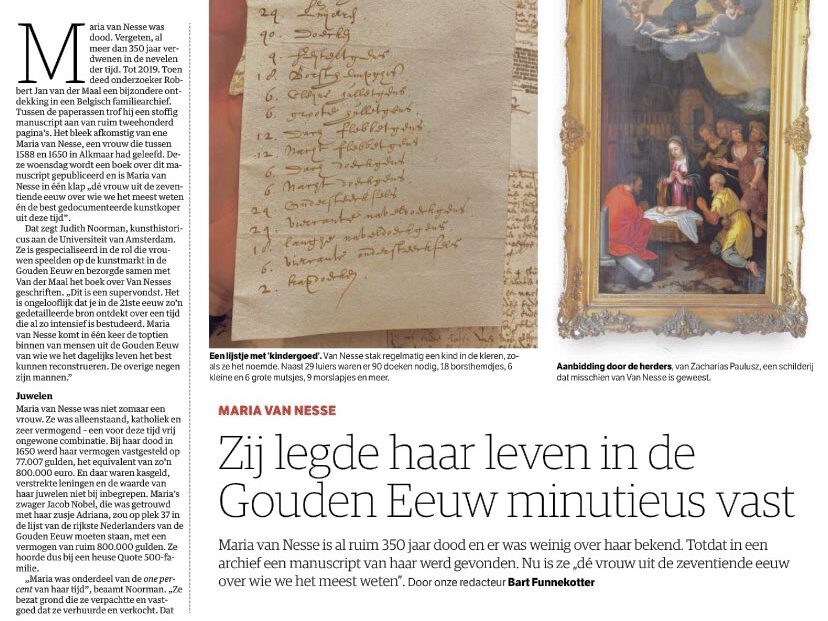 Maria van Nesse was
dood. Vergeten, al
meer dan 350 jaar ver-
dwenen in de nevelen
der tijd. Tot 2019. Toen
deed onderzoeker Rob-
bert Jan van der Maal een bijzondere ont-
dekking in een Belgisch familiearchief.
Tussen de paperassen trof hij een stoffig
manuscript aan van ruim tweehonderd
pagina's. Het bleek afkomstig van ene
Maria van Nesse, een vrouw die tussen
1588 en 1650 in Alkmaar had geleefd. De-
ze woensdag wordt een boek over dit ma-
nuscript gepubliceerd en is Maria van
Nesse in één klap „dé vrouw uit de zeven-
tiende eeuw over wie we het meest weten
én de best gedocumenteerde kunstkoper
uit deze tijd”.
Dat zegt Judith Noorman, kunsthistori-
cus aan de Universiteit van Amsterdam.
Ze is gespecialiseerd in de rol die vrou-
wen speelden op de kunstmarkt in de
Gouden Eeuw en bezorgde samen met
Van der Maal het boek over Van Nesses
geschriften. „Dit is een supervondst. Het
is ongelooflijk dat je in de 21ste eeuw zo'n
gedetailleerde bron ontdekt over een tijd
die al zo intensief is bestudeerd. Maria
van Nesse komt in één keer de toptien
binnen van mensen uit de Gouden Eeuw
van wie we het dagelijks leven het best
kunnen reconstrueren. De overige negen
zijn mannen.”
Juwelen
Maria van Nesse was niet zomaar een
vrouw. Ze was alleenstaand, katholiek en
zeer vermogend – een voor deze tijd vrij
ongewone combinatie. Bij haar dood in
1650 werd haar vermogen vastgesteld op
77.007 gulden, het equivalent van zo'n
800.000 euro. En daar waren kasgeld,
verstrekte leningen en de waarde van
haar juwelen niet bij inbegrepen. Maria's
zwager Jacob Nobel, die was getrouwd
met haar zusje Adriana, zou op plek 37 in
de lijst van de rijkste Nederlanders van de
Gouden Eeuw moeten staan, met een
vermogen van ruim 800.000 gulden. Ze
hoorde dus bij een heuse Quote 500-fa-
milie.
„Maria was onderdeel van de one per-
cent van haar tijd”, beaamt Noorman. „Ze
bezat grond die ze verpachtte en vast-
goed dat ze verhuurde en verkocht. Dat
29
90.
9
18.
6.
6.
12.
12.
6.
6
24
29
18
6.
2.
Een lijstje met 'kindergoed'. Van Nesse stak regelmatig een kind in de kleren, zo-
als ze het noemde. Naast 29 luiers waren er 90 doeken nodig, 18 borsthemdjes, 6
kleine en 6 grote mutsjes, 9 morslapjes en meer.
Aanbidding door de herders, van Zacharias Paulusz, een schilderij
dat misschien van Van Nesse is geweest.
MARIA VAN NESSE
Zij legde haar leven in de
Gouden Eeuw minutieus vast
Maria van Nesse is al ruim 350 jaar dood en er was weinig over haar bekend. Totdat in een
archief een manuscript van haar werd gevonden. Nu is ze „dé vrouw uit de zeventiende eeuw
over wie we het meest weten”. Door onze redacteur Bart Funnekotter